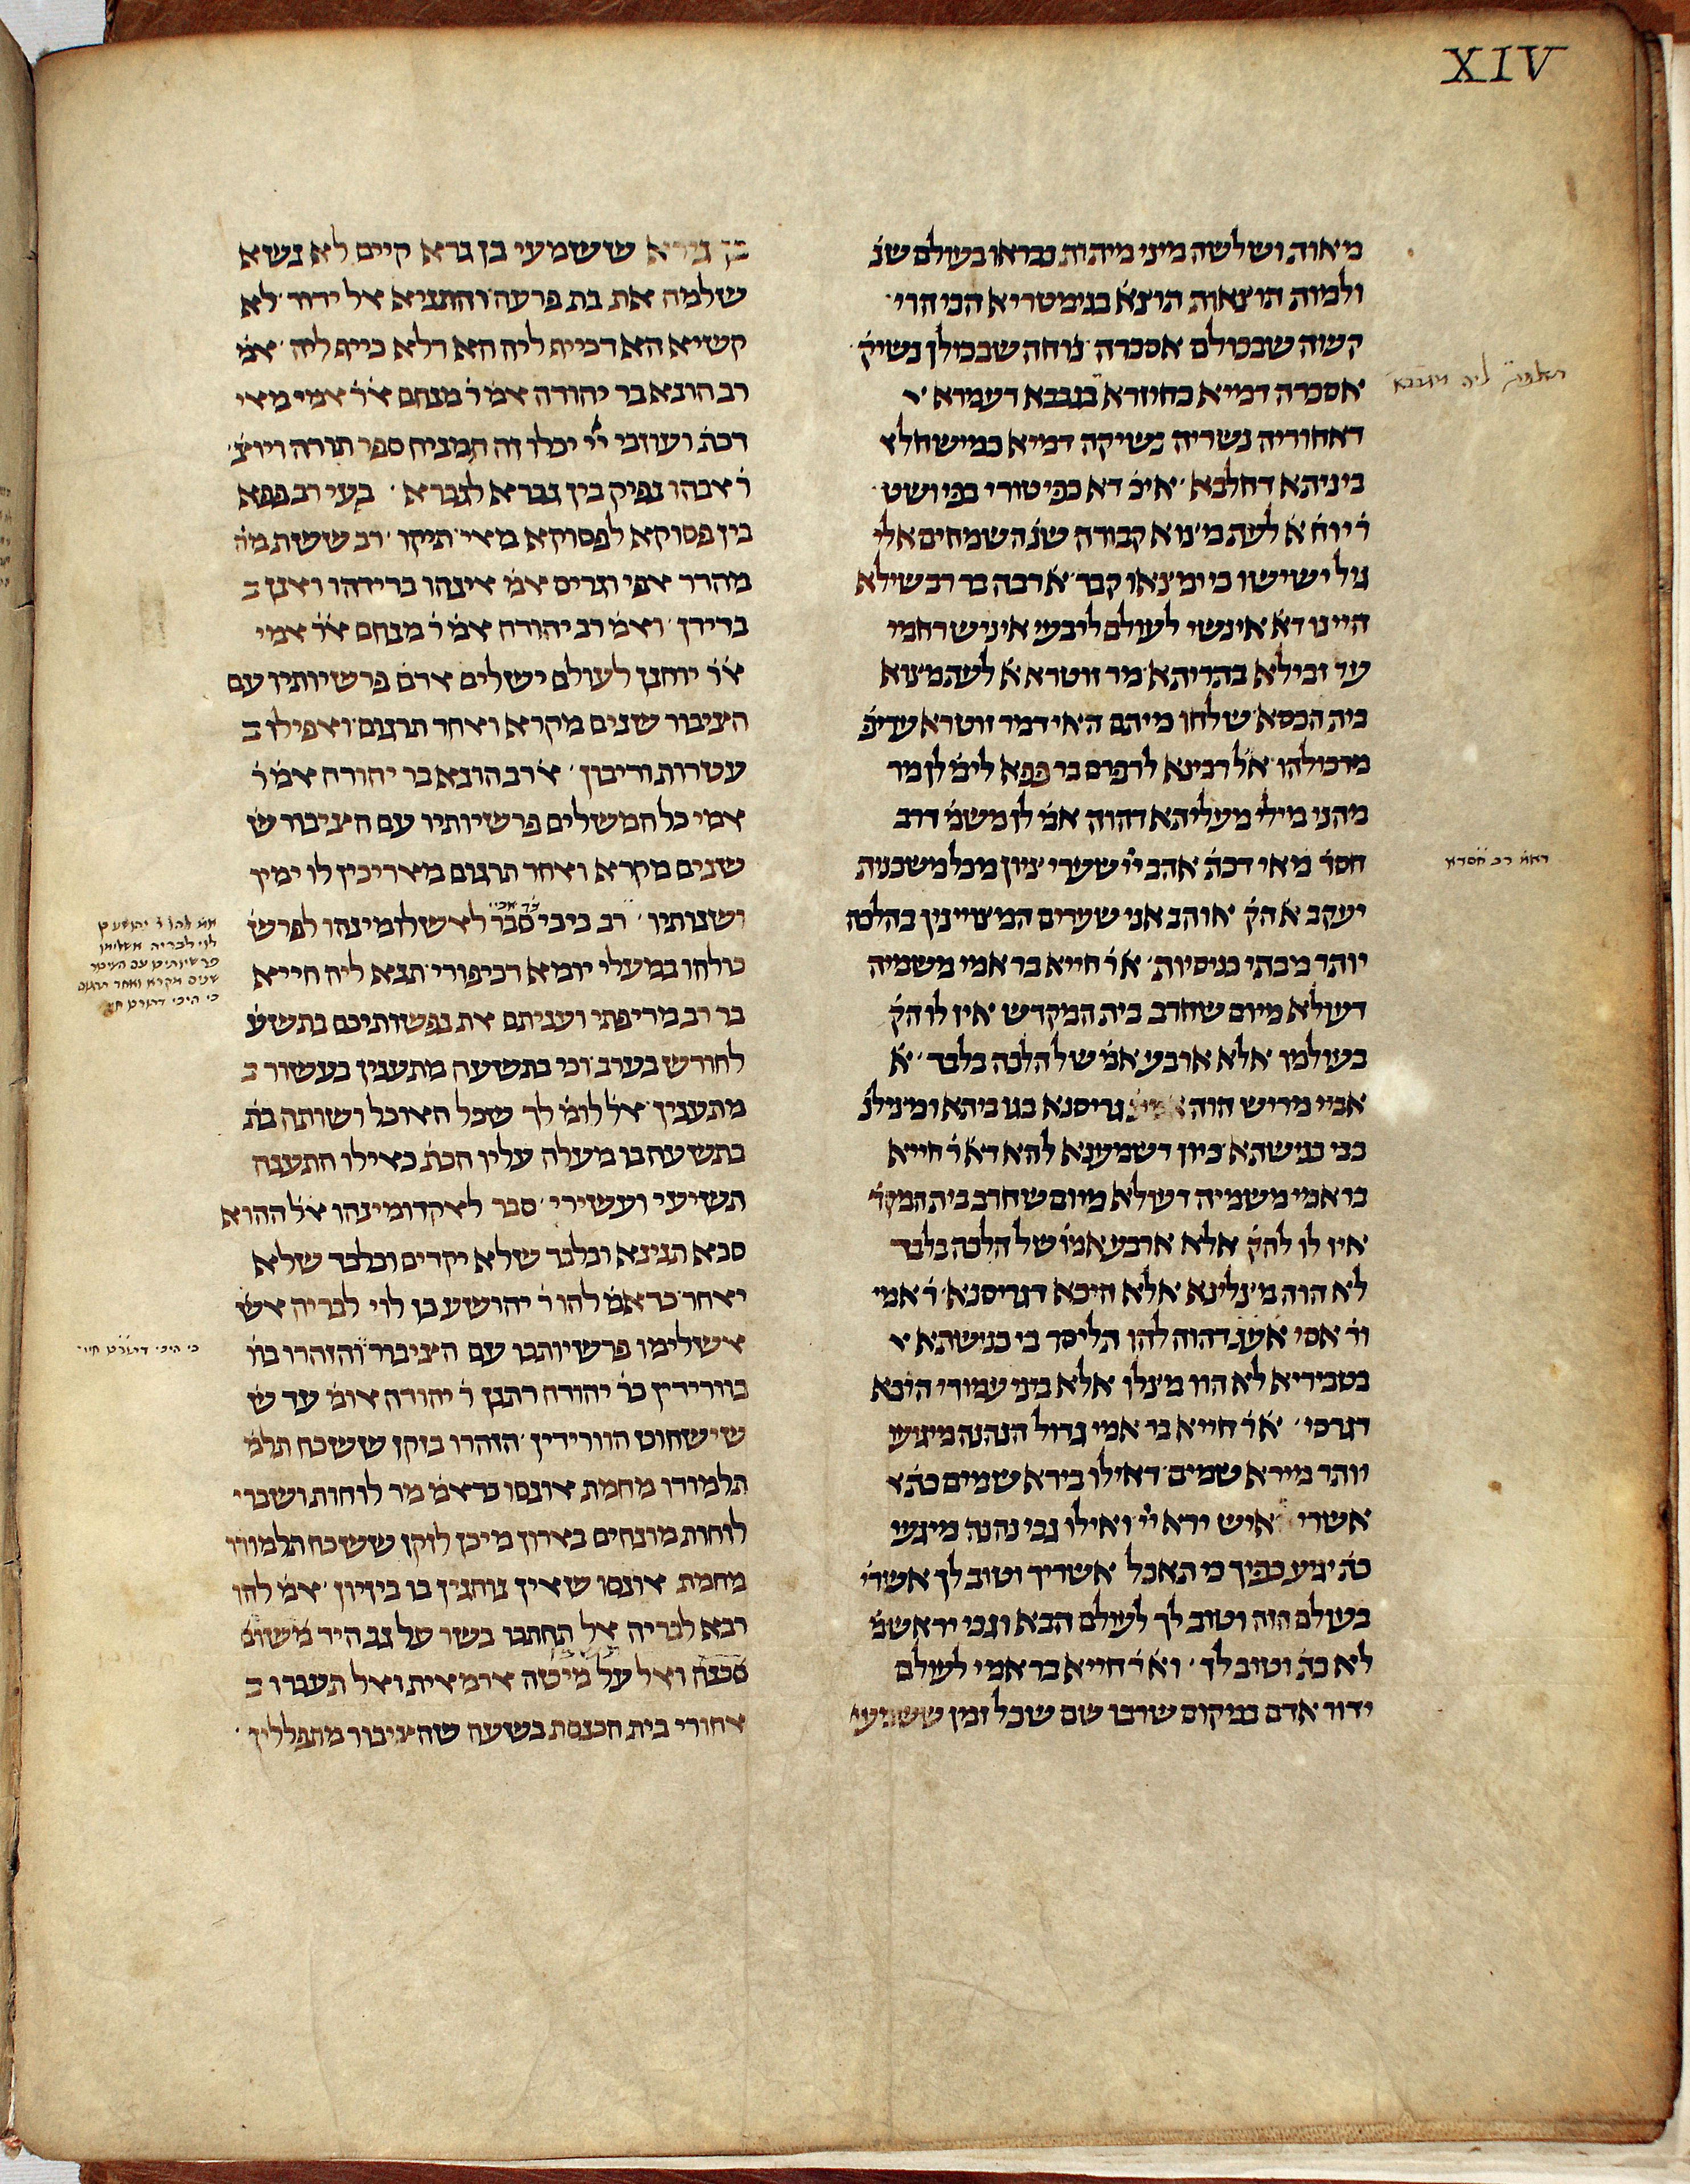 XIV
מאות ושלשה מיני מיתות נבראו בעולם שנ׳
ולמות תוצאות תוצא׳ בגימטריא הכי הוי׳
קשה שבכולם אסכרה נוחה שבכולן נשיק׳
אסכרה דמייא כחיזרא בגבבא דעמרא
דאחוריה נשריה נשיקה דמיא כמישחל
ביניתא דחלבא איכ׳ דא׳ כפיטורי בפי ושט
ר׳ יוח׳ א׳ לעת מצוא זו קבורה שנ׳ השמחים אלי
גיל ישישו כי ימצאו קבר א׳ רבה בר רב שילא
היינו דא׳ אינשי לעולם ליבעי איניש רחמי
עד זבילא בתריתא מר זוטרא א׳ לעת מצוא
בית הכסא שלחו מיתם האי דמר זוטרא עדיפ׳
מכולהו א׳ל רבינא לרפרם בר פפא לימ׳ לן מר
מהני מילי מעלייתא דהוה אמ׳ לן משמ׳ דרב
חסד׳ מאי דכת׳ אהב יי׳ שערי ציון מכל משכנות
יעקב א׳ הק׳ אוהב אני שערים המצויינין בהלכה
יותר מבתי כניסיות׳ א׳ר׳ חייא בר אמי משמיה
דעולא מיום שחרב בית המקדש אין לו הק׳
בעולמו אלא ארבע אמ׳ של הלכה בלבד׳ א׳
אביי מריש הוה גריסנא בגו ביתא ומצלנ׳
בבי כנישתא כיון דשמענא להא דא׳ר׳ חייא
בר אמי משמיה דעולא מיום שחרב בית המקד׳
אין לו להק׳ אלא ארבע אמו׳ של הלכה בלבד
לא הוה מצלינא אלא היכא דגריסנא׳ ר׳ אמי
ור׳ אסי אע׳ג דהוה להו תליסר בי כנישתא
בטבריא לא הוו מצלו אלא ביני עמודי היכא
דגרסי׳ א׳ר׳ חייא בר אמי גדול הנהנה מיגיע
יותר מיירא שמים דאילו בירא שמים כת׳
אשרי איש ירא יי׳ ואילו גבי נהנה מיגע
כת׳ יגיע כפיך כי תאכל אשריך וטוב לך אשרי׳
בעולם הזה וטוב לך לעולם הבא וגבי ירא שמ׳
לא כת׳ וטוב לך׳ וא׳ר׳ חייא בר אמי לעולם
ידור אדם במקום שרבו שם שכל זמן ששמעי
בן גירא ששמעי בן גרא קיים לא נשא
שלמה את בת פרעה והתניא אל ידור לא
קשיא הא דכייף ליה הא דלא כייף ליה׳ אמ׳
רב הונא בר יהודה אמ׳ ר׳ מנחם א׳ר׳ אמי מאי
דכת׳ ועוזבי יי׳ יכלו זה המניח ספר תורה ויוצ׳
ר׳ אבהו נפיק בין גברא לגברא׳ בעי רב פפא
בין פסוקא לפסוקא מאי תיקו׳ רב ששת מה׳
מהדר אפי וגריס אמ׳ אינהו בדידהו ואנן ב
בדידן׳ ואמ׳ רב יהודה אמ׳ ר׳ מנחם א׳ר׳ אמי
א׳ר׳ יוחנן לעולם ישלים אדם פרשיותיו עם
הציבור שנים מקרא ואחד תרגום ואפילו ב
עטרות ודיבון׳ א׳ רב הונא בר יהודה אמ׳ ר׳
אמי כל המשלים פרשיותיו עם הציבור ש
שנים מקרא ואחד תרגום מאריכין לו ימיו
ושנותיו׳ רב ביבי סבר לאשלומינהו לפרש׳
בר אביי
כולהו במעלי יומא דכיפורי תנא ליה חייא
בר רב מדיפתי ועניתם את נפשותיכם בתשע׳
לחודש בערב וכי בתשעה מתענין בעשור ב
מתענין אלא לומ׳ לך שכל האוכל ושותה בת׳
בתשעה בו מעלה עליו הכת׳ כאילו התענה
תשיעי ועשירי׳ סבר לאקדומינהו א׳ל ההוא
סבא תנינא ובלבד שלא יקדים ובלבד שלא
יאחר כדאמ׳ להו ר׳ יהושע בן לוי לבריה אש
אשלימו פרשיותכו עם הציבור והזהרו בוו׳
בוורידין כר׳ יהודה דתנן ר׳ יהודה אומ׳ עד ש
שישחוט הוורידין׳ הזהרו בזקן ששכח תלמ׳
תלמודו מחמת אונסו כדאמ׳ מר לוחות ושברי
לוחות מונחים בארון מיכן לזקן ששכח תלמודו
מחמת אונסו שאין נוהגין בו בזיון׳ אמ׳ להו
רבא לבריה אל תחתכו בשר על גב היד משום
סכנה ואל על מיטה ארמאית ואל תעברו ב
אחורי בית הכנסת בשעה שהציבור מתפללין
דאמ׳ רב חסדא
אמ׳ להו ר׳ יהושע בן
לוי לבריה אשלימו
פרשיותיכו עם הציבור
שנים מקרא ואחד תרגום